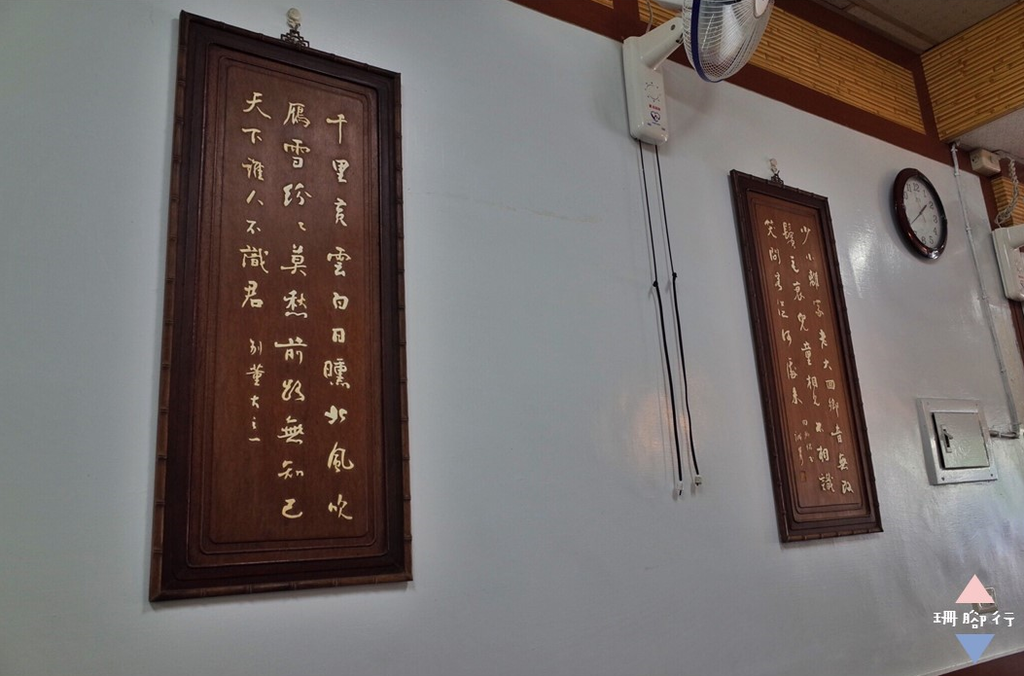 千里黃雲白日曛北風吹
鴈雪紛〻莫愁前路無知己
天下誰人不識君 別董大之一
少小離家老大回鄉音無改
鬢毛衰兒童相見不相識
笑問客從何處來
珊腳行